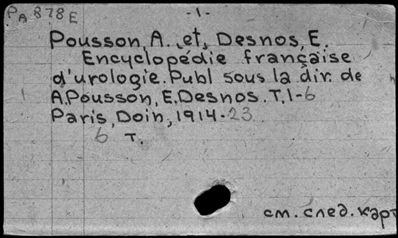 PA 878 E
-1-
Pousson, A. et, Desnos, E.
Encyclopédie française
d'urologie. Publ sous la dir. de
A.Pousson, E.Desnos. T.1-6
Paris, Doin, 1914-23
6 T.
см. след. карт